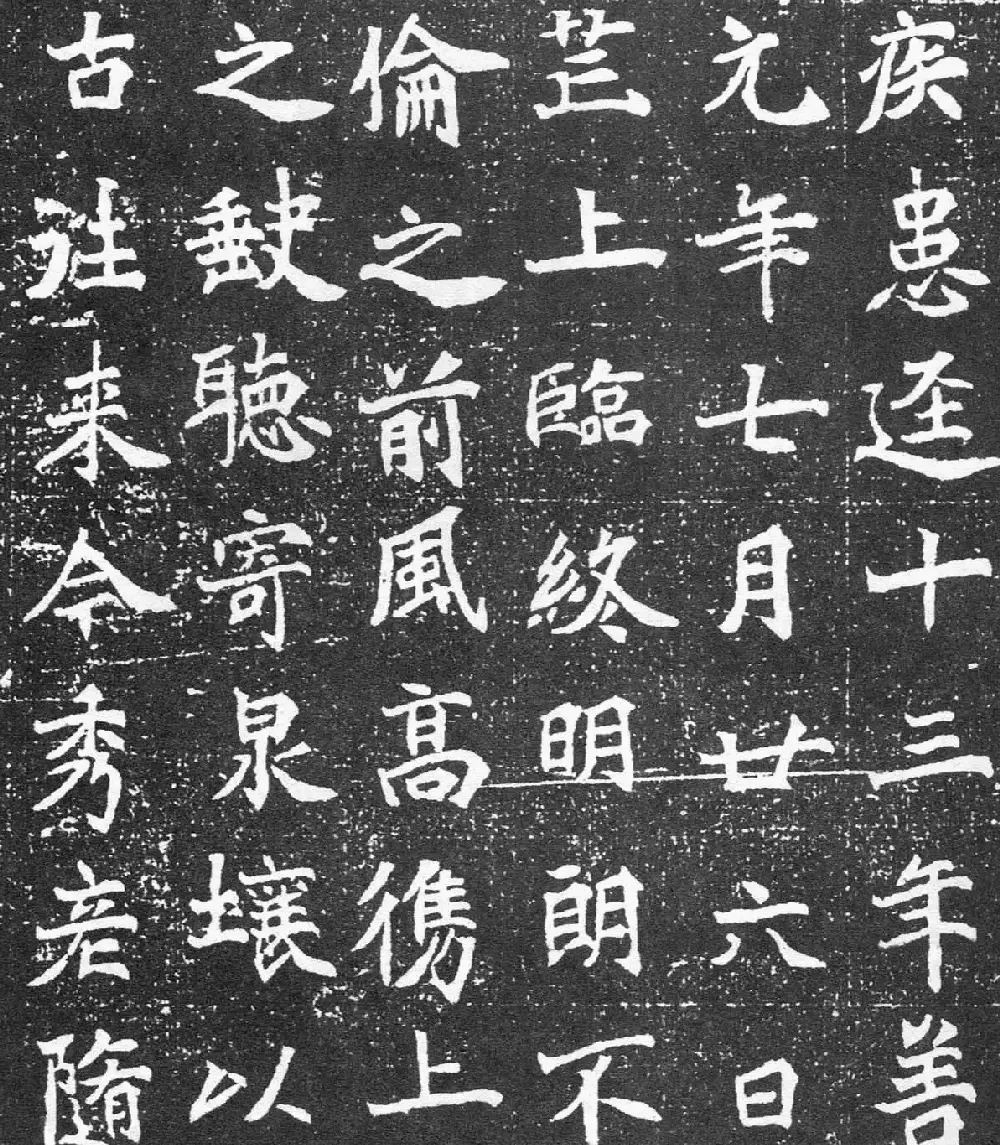 疾患迳十三年善
元年七月廿六日
芒上臨終明朗不
倫之前風高儁上
之缺聽寄泉壤以
古往来今秀彦隨